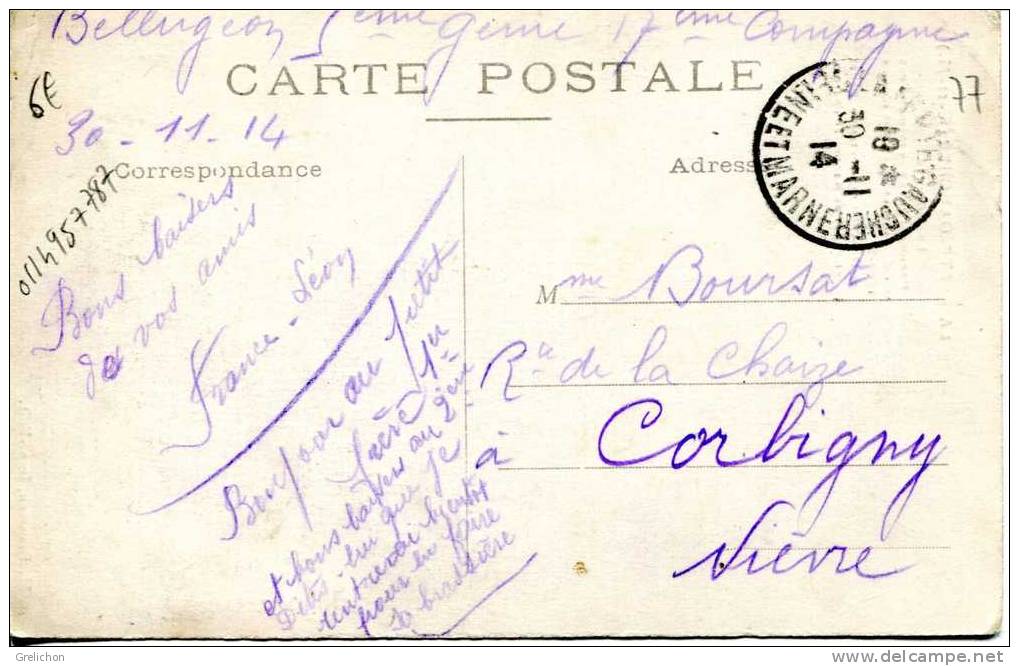 Bellugeon 5ème Génie 17ème Compagnie
CARTE POSTALE
6€
77
30-11-14
Correspondance
Adresse
0114957787
SEINE ET MARNE
18
30-11
14
Bons baisers
de vos amis
France-Léon
Bonjour au petit
frère 1er
et bons baisers au 2ème
Dites-lui que je
rentrerai bientôt
pour lui faire
sa brassière
Mme Boursat
Re de la Chaize
à Corbigny
Nièvre
Grelichon
www.delcampe.net